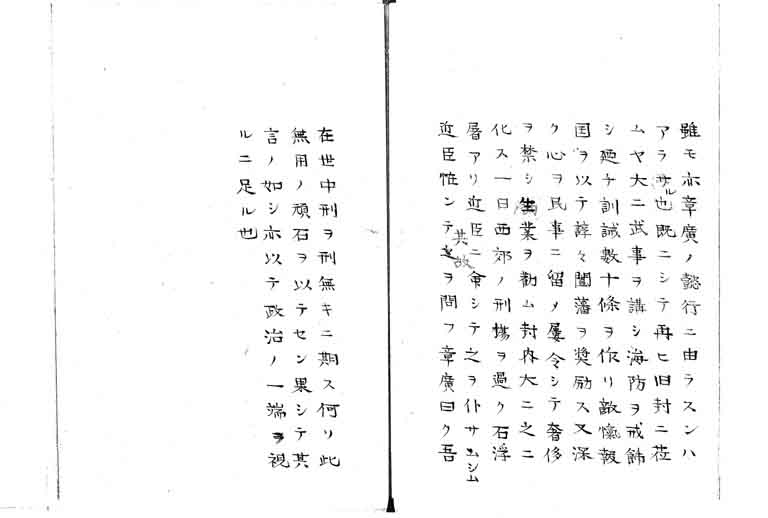 雖モ亦章廣ノ懿行ニ由ラスンハ
アラサル也既ニシテ再ヒ旧封ニ莅
ムヤ大ニ武事ヲ講シ海防ヲ戒飭
シ廼チ訓誡数十條ヲ作リ敵愾報
国ヲ以テ諄々闔藩ヲ奨励ス又深
ク心ヲ民事ニ留メ屡令シテ奢侈
ヲ禁シ生業ヲ勸ム封内大ニ之ニ
化ス一日西郊ノ刑場ヲ過ク石浮
屠アリ近臣ニ命シテ之ヲ仆サムシム
近臣恠ンテ其故ヲ問フ章廣曰ク吾
在世中刑ヲ刑無キニ期ス何ソ此
無用ノ頑石ヲ以テセン果シテ其
言ノ如シ亦以テ政治ノ一端ヲ視
ルニ足ル也